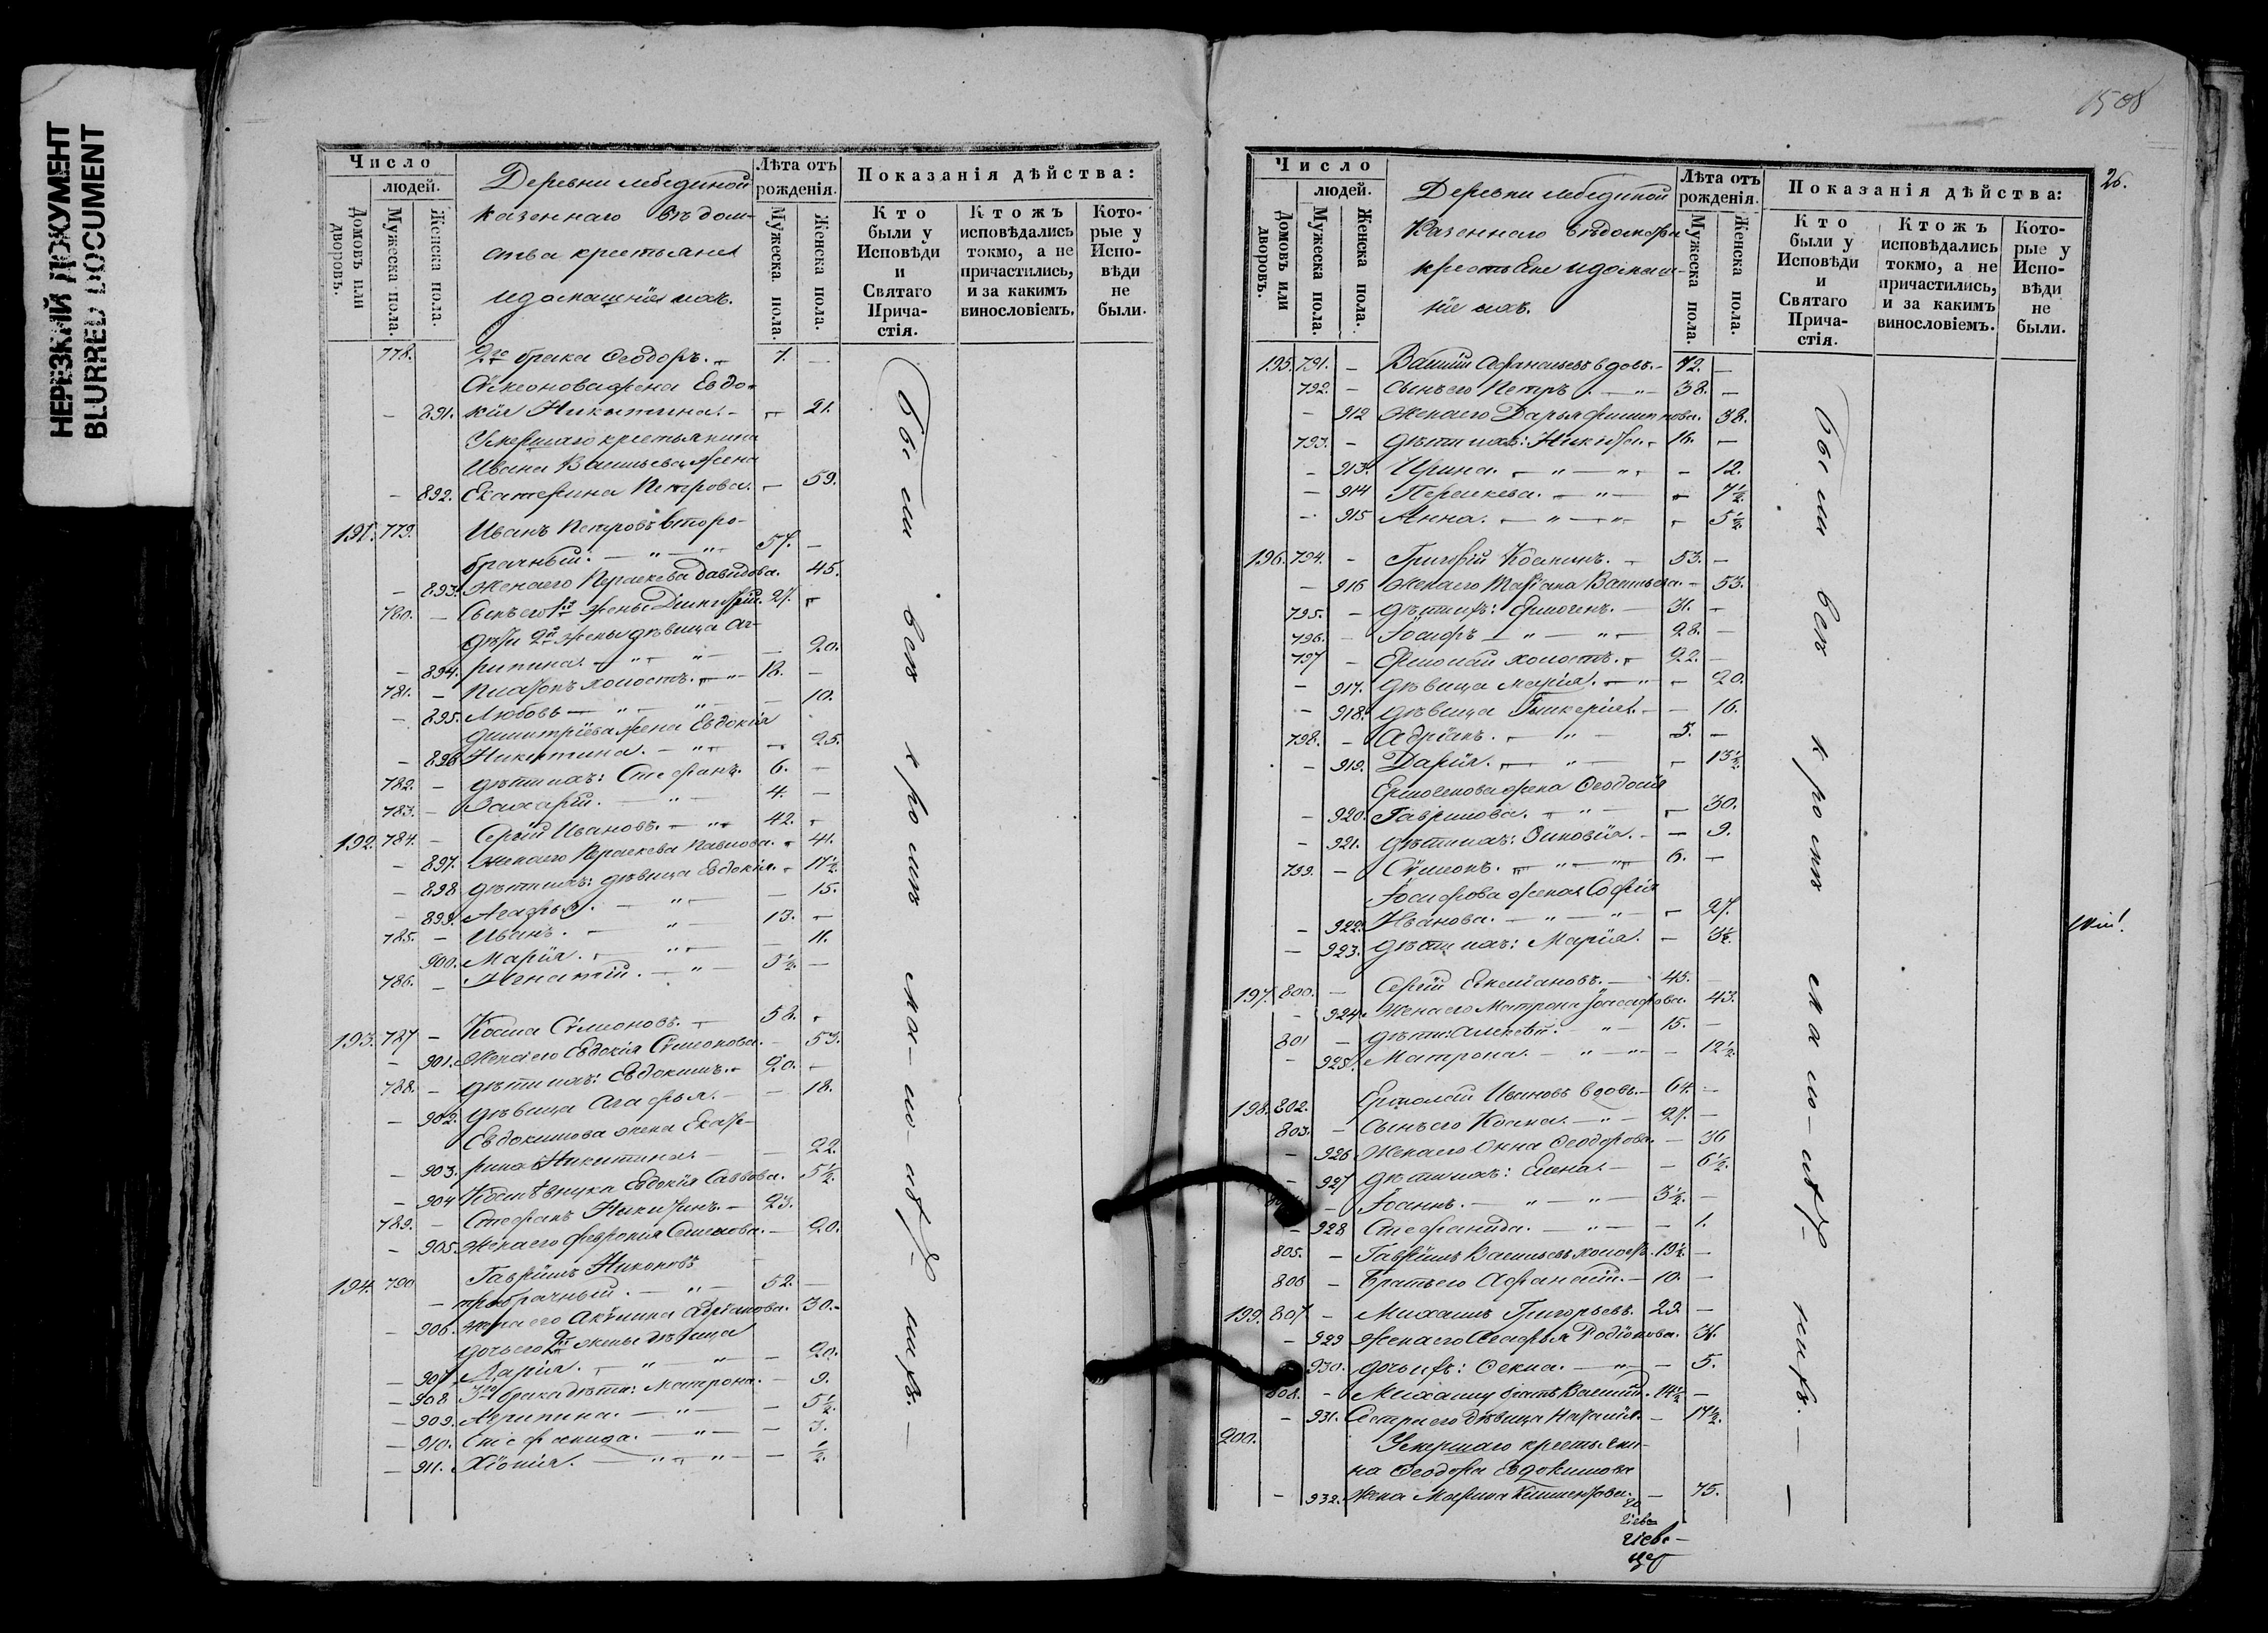 НЕРЕЗКИЙ ДОКУМЕНТ
BLURRED DOCUMENT
Число
людей.
Домовъ или дворовъ.
Мужеска пола.
Женска пола.
Деревни Лебединой
казеннаго вѣдом-
ства крестьяне
и домашніе ихъ.
Лѣта отъ рожденія.
Мужеска пола.
Женска пола.
Показанія дѣйства:
Кто были у Исповѣди и Святаго Прича-стія.
Ктожъ исповѣдались токмо, а не причастились, и за какимъ винословіемъ.
Кото-рые у Испо-вѣди не были.
778. 2го брака Ѳеодоръ. 7. —
Сѵмеонова жена Евдо-
— 891. кія Никитина. — 21.
Умершаго крестьянина
Ивана Васильева жена
— 892. Екатерина Петрова. — 59.
191. 779. Иванъ Петровъ второ-
брачный. — " — " — 57. —
— 893. Жена его Параскева Давидова. 45.
780. — Сынъ его 1й жены Димитрій. 27. —
дѣти 2й жены дѣвица Аг-
— 894. рипина. — " — " — 20.
781. — Платонъ холостъ. — " — 18. —
— 895. Любовь — " — " — 10.
Димитріева жена Евдокія
— 896. Никитина. — " — 25.
782. — дѣти ихъ: Стефанъ. 6. —
783. — Захарій. — " — 4. —
192. 784. — Сергій Ивановъ. — " — 42. —
— 897. Жена его Параскева Павлова. — 41.
— 898 дѣти ихъ: дѣвица Евдокія. — 17½.
— 899. Агафья. — " — 15.
785. — Иванъ. — " — 13. —
900. Марія. — " — 11.
786. — Игнатій. — " — 5½. —
193. 787 — Косма Сѵмеоновъ. — 58. —
— 901. Жена его Евдокія Сѵмеонова. — 53.
788. — дѣти ихъ: Евдокимъ. — 20. —
— 902. дѣвица Агафья. — 18.
Евдокимова жена Екате-
— 903. рина Никитина. — 22.
— 904 Космѣ внука Евдокія Саввова. 5½.
789. — Стефанъ Никитинъ. — 23.
— 905. Жена его Феврония Семенова. — 20.
194. 790 Гавріилъ Никоновъ
— треб­рачный. — " — 52. —
— 906. Жена его Акилина Адріанова. 30. —
дочь его 2й жены дѣвица
— 907. Дарія. — " — " — 20.
— 908 3го брака дѣти: Матрона. — 9.
— 909. Агрипина. — " — 5½.
— 910. Стефанида. — " — 3.
— 911. Хіонія. — " — " — ½.
Были всѣ кромѣ мало-лѣтнихъ. —
1508
26.
Число
людей.
Домовъ или дворовъ.
Мужеска пола.
Женска пола.
Деревни Лебединой
Казеннаго вѣдомства
крестьяне и домаш-
ніе ихъ.
Лѣта отъ рожденія.
Мужеска пола.
Женска пола.
Показанія дѣйства:
Кто были у Исповѣди и Святаго Прича-стія.
Ктожъ исповѣдались токмо, а не причастились, и за какимъ винословіемъ.
Кото-рые у Испо-вѣди не были.
195. 791. — Василій Афанасьевъ вдовъ. — 72. —
792. — Сынъ его Петръ. — " — 38. —
— 912 Жена его Дарья Филиппова. 38.
793. — дѣти ихъ: Никита. — 16. —
— 913. Ирина. — " — " — 12.
— 914 Параскева. — " — 7½.
— 915 Анна. — " — " — 5½.
196. 794. — Григорій Косминъ. — 53. —
— 916 Жена его Татіана Васильева. — 53.
795. — дѣти ихъ: Ермогенъ. — 31. —
796. — Іосифъ — " — " — 28. —
797 — Ермолай холостъ. — 22. —
— 917. дѣвица Марія. — " — 20.
— 918. дѣвица Гликерія. — 16.
798. — Адріанъ. — " — 5. —
— 919. Дарія. — " — 13½.
Ермогенова жена Ѳеодосія
— 920. Гаврилова. — " — 30.
— 921. дѣти ихъ: Зиновія. — 9.
799. — Сѵмеонъ. — " — " — 6. —
Іосифова жена Софія
— 922. Иванова. — " — " — 27.
— 923. дѣти ихъ: Марія. — 3½.
197. 800. — Сергій Емеліановъ. — 45. —
— 924. Жена его Матрона Іоасафова. 43.
801 — дѣти: Алексѣй. — " — 15. —
— 925. Матрона. — " — " — 12½.
198. 802. Ермолай Ивановъ вдовъ. — 64. —
803. — Сынъ его Косма. — " — 27. —
— 926 Жена его Анна Ѳеодорова. — 36
— 927 дѣти ихъ: Елена. — 6½.
— Іоаннъ. — " — " — 3½. —
— 928 Стефанида. — " — 1.
805. — Гавріилъ Васильевъ холостъ. 19½. —
806 — Братъ его Афанасій. — 10. —
199. 807 — Михаилъ Григорьевъ. 29 —
— 929 Жена его Агафья Родіонова. 31.
930. дочь ихъ: Ѳекла. — " — 5.
808. — Михаилу братъ Василій. 14½ —
— 931. Сестра его дѣвица Наталія. — 17½.
200. Умершаго крестьяни-
на Ѳеодора Евдокимова
— 932. Жена Марина Климентова. — 75.
Были всѣ кромѣ мало-лѣтнихъ. —